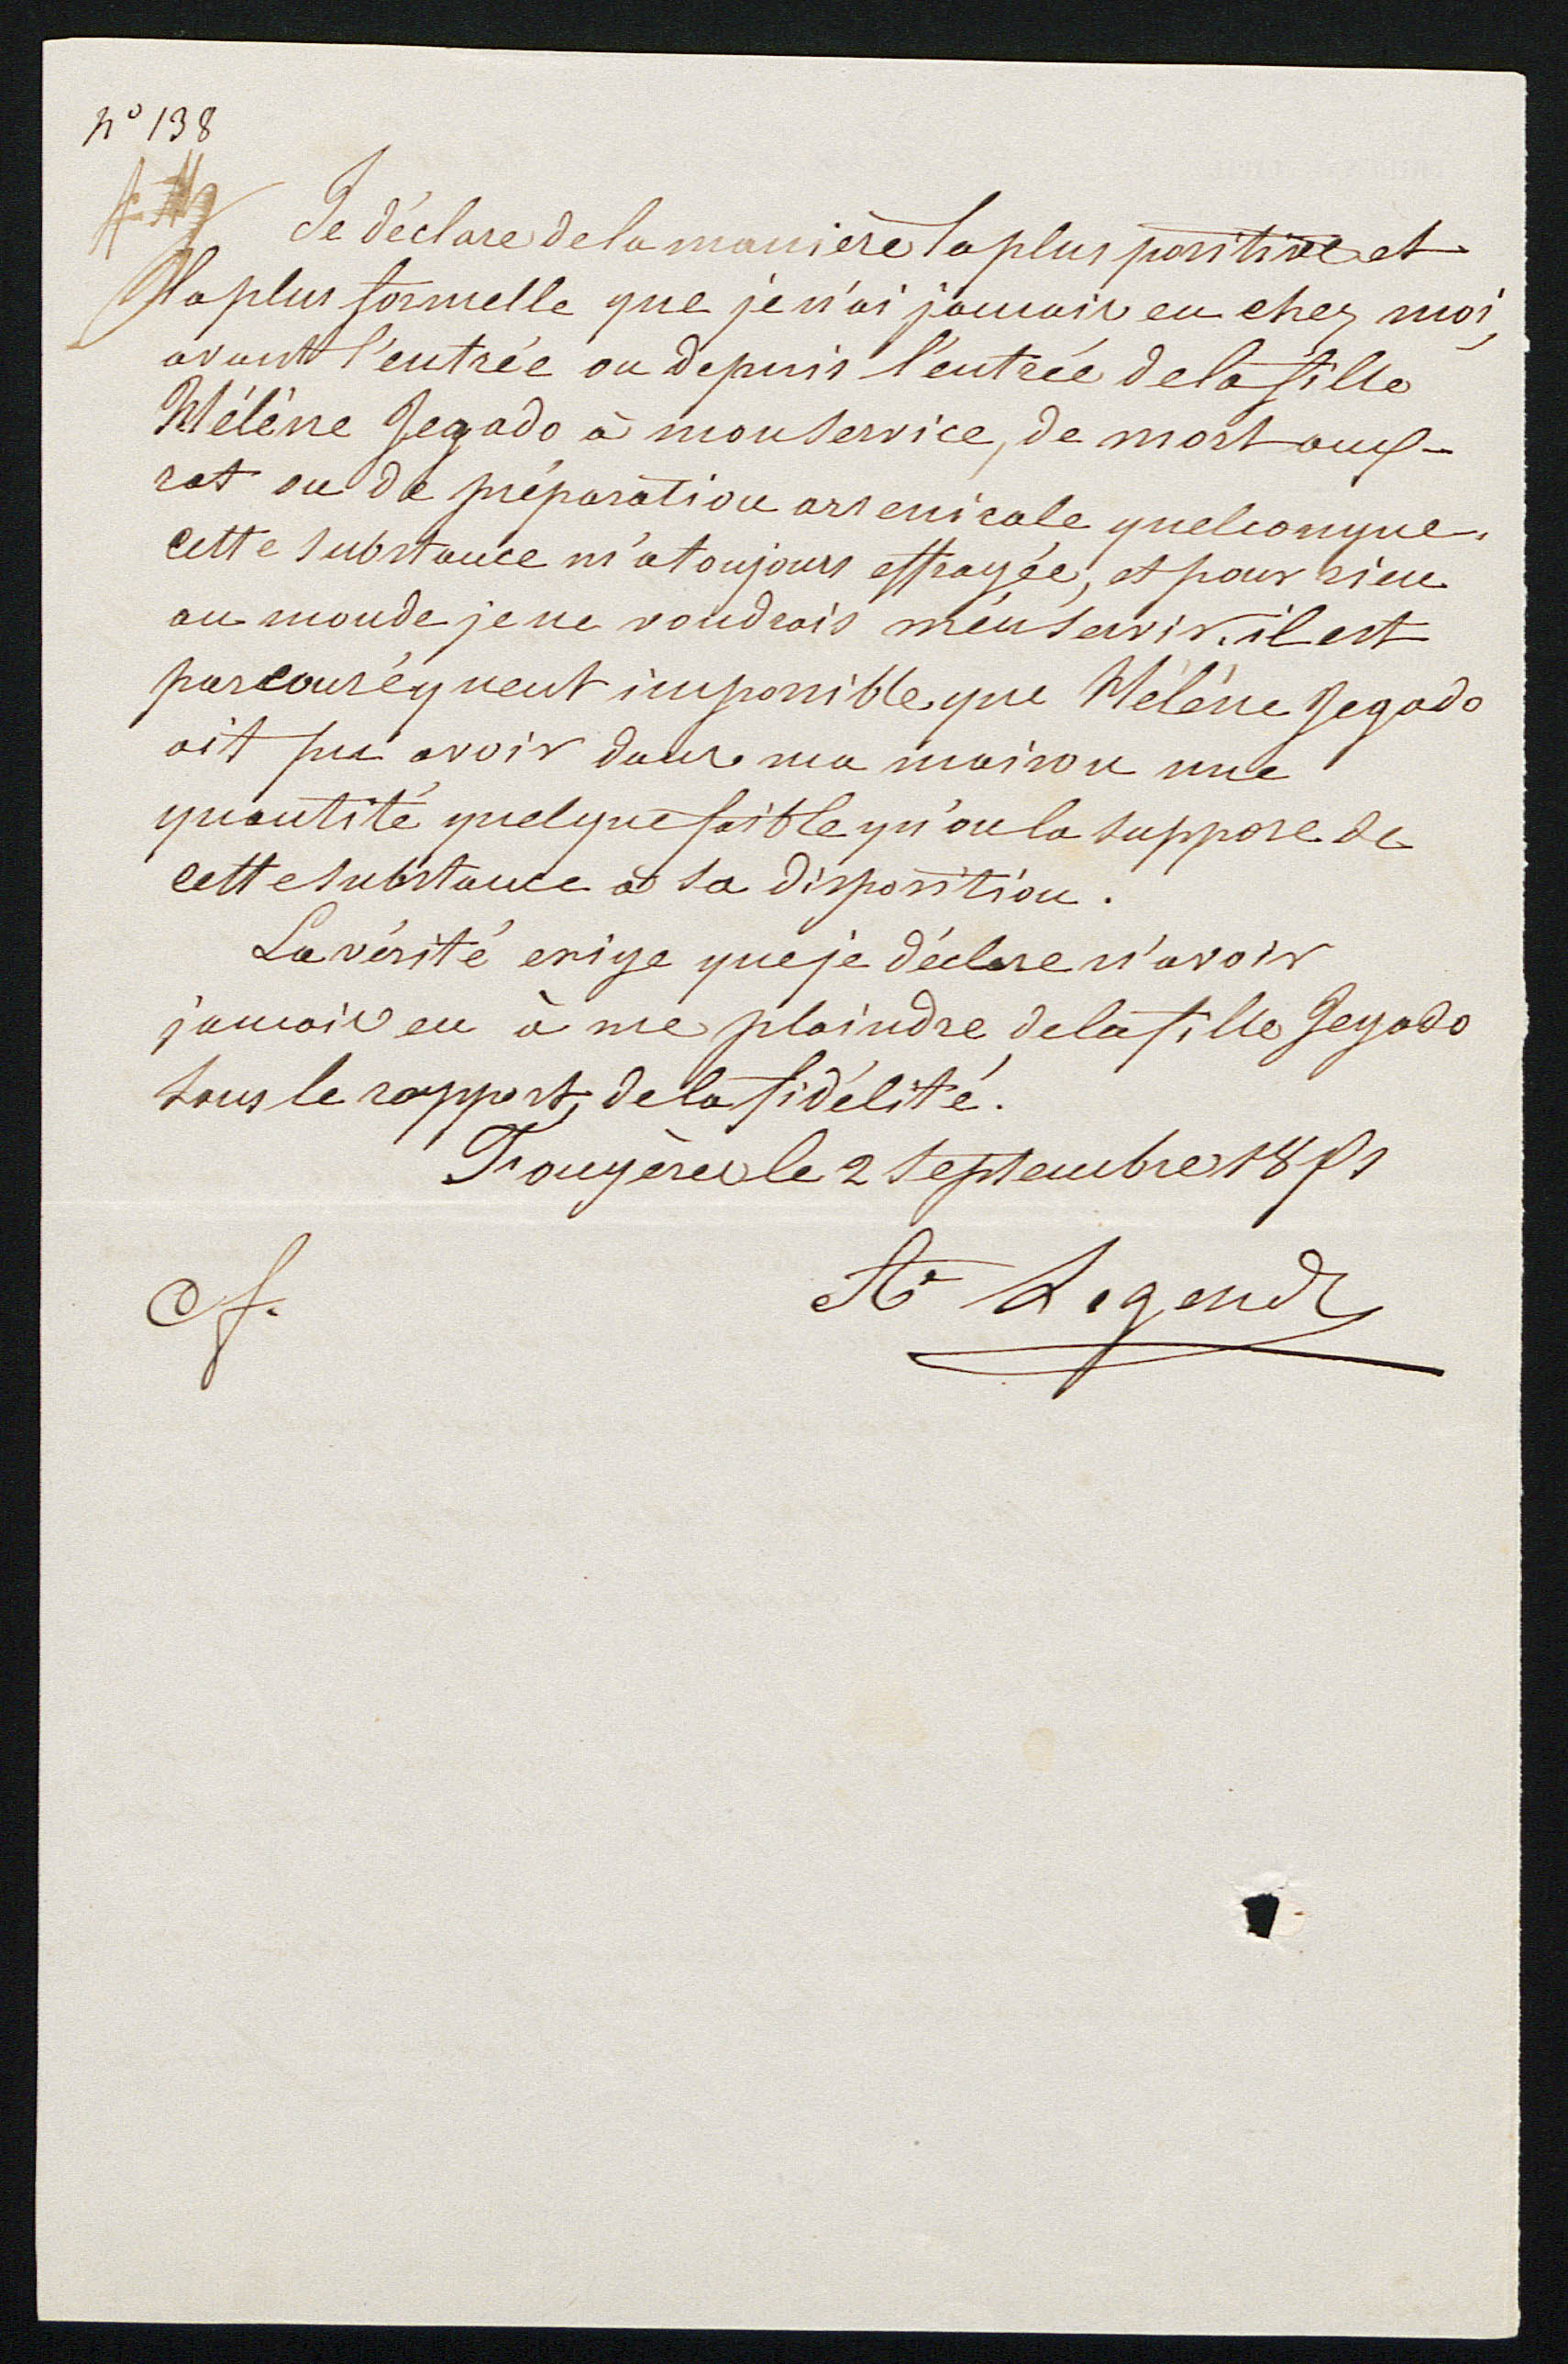 n° 138
Je déclare de la manière la plus positive et
la plus formelle que je n'ai jamais eu chez moi,
avant l'entrée ou depuis l'entrée de la fille
Hélène Jegado à mon service, de mort aux-
rat ou de préparation arsenicale quelconque.
cette substance m'a toujours effrayée, et pour rien
au monde je ne voudrais m'en servir. il est
par conséquent impossible que Hélène Jegado
ait pu avoir dans ma maison une
quantité quelque faible qu'on la suppose de
cette substance à sa disposition.
La vérité exige que je déclare n'avoir
jamais eu à me plaindre de la fille Jegado
sous le rapport, de la fidélité.
Fougères le 2 septembre 1851